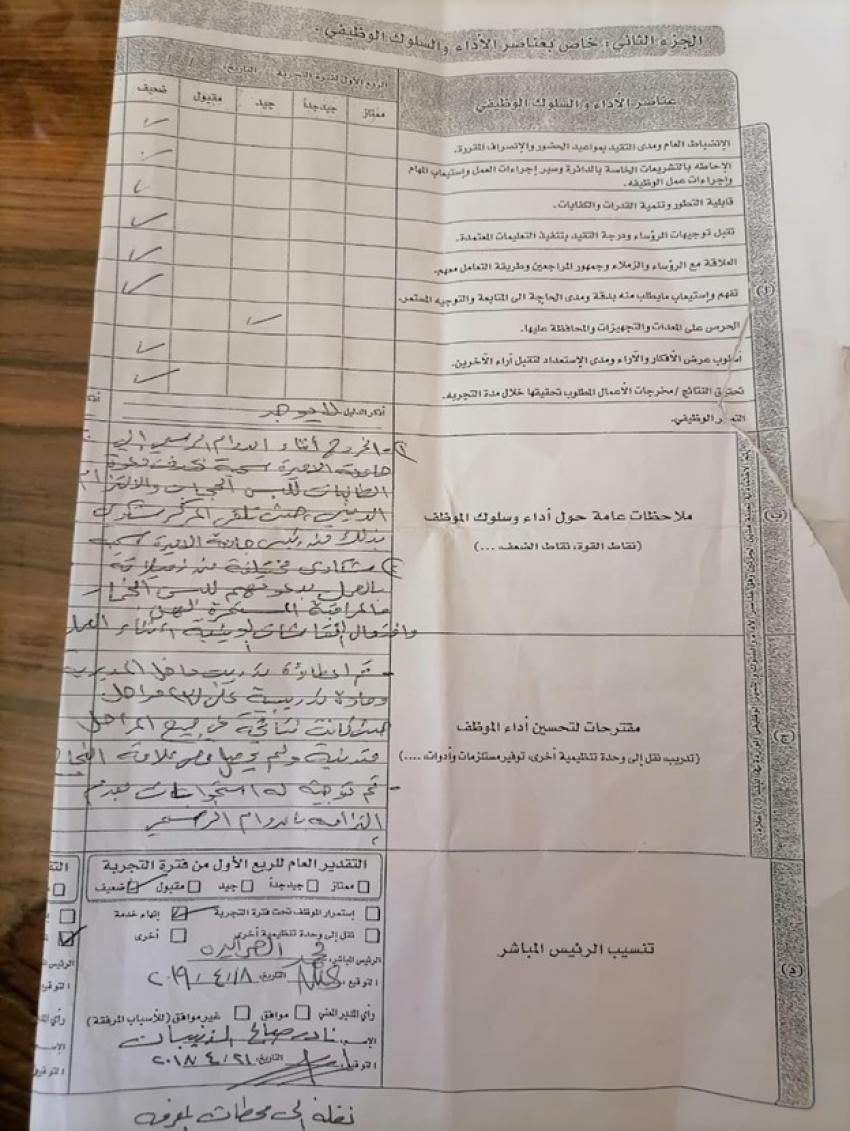 الجزء الثاني: خاص بعناصر الأداء والسلوك الوظيفي.
عناصر الأداء والسلوك الوظيفي
الربع الأول لفترة التجربة التاريخ: / /
ممتاز جيد جداً جيد مقبول ضعيف
(أ)
الإنضباط العام ومدى التقيد بمواعيد الحضور والإنصراف المقررة.
الإحاطة بالتشريعات الخاصة بالدائرة وسير إجراءات العمل وإستيعاب المهام
وإجراءات عمل الوظيفة.
قابلية التطور وتنمية القدرات والكفايات.
تقبل توجيهات الرؤساء ودرجة التقيد بتنفيذ التعليمات المعتمدة.
العلاقة مع الرؤساء والزملاء وجمهور المراجعين وطريقة التعامل معهم.
تفهم وإستيعاب مايطلب منه بدقة ومدى الحاجة الى المتابعة والتوجيه المستمر.
الحرص على المعدات والتجهيزات والمحافظة عليها.
أسلوب عرض الأفكار والآراء ومدى الإستعداد لتقبل آراء الآخرين.
تحقيق النتائج /مخرجات الأعمال المطلوب تحقيقها خلال مدة التجربة.
الوظيفي.
أذكر الدليل لا يوجد
(ب)
ملاحظات عامة حول أداء وسلوك الموظف
(نقاط القوة، نقاط الضعف، ...)
- الخروج أثناء الدوام الرسمي إلى
جامعة الأميرة سمية بهدف دعوة
الطالبات للبس الحجاب والالتزام
الديني، حيث تلقى المركز شكوى
بذلك من رئيس جامعة الأميرة سمية
شكاوى مختلفة من زميلاته
بالعمل بدعوتهم للبس الخمار
والمراقبة المستمرة لهن
وافتعال نقاشات دينية أثناء العمل
(ج)
مقترحات لتحسين أداء الموظف
(تدريب، نقل إلى وحدة تنظيمية أخرى، توفير مستلزمات وأدوات، ....)
- تم اعطاؤه تدريب داخل المديرية
ومادة تدريبية على مراحل
حيث كانت نتائجه في جميع المراحل
متدنية ولم يحصل على علامة النجاح
- تم توجيه له استجوابات بعدم
التزامه بالدوام الرسمي
(د)
تنسيب الرئيس المباشر
التقدير العام للربع الأول من فترة التجربة
ممتاز جيد جداً جيد مقبول ضعيف
إستمرار الموظف تحت فترة التجربة إنهاء خدمة
نقل إلى وحدة تنظيمية أخرى أخرى
الرئيس المباشر:
التوقيع: التاريخ: ٢٠١٩/٤/١٨
رأي المدير المعني موافق غير موافق (للأسباب المرفقة)
الإسم: نادر صالح الذنيبات
التوقيع: التاريخ: ٢٠١٨/٤/٢١
نقله إلى محطات